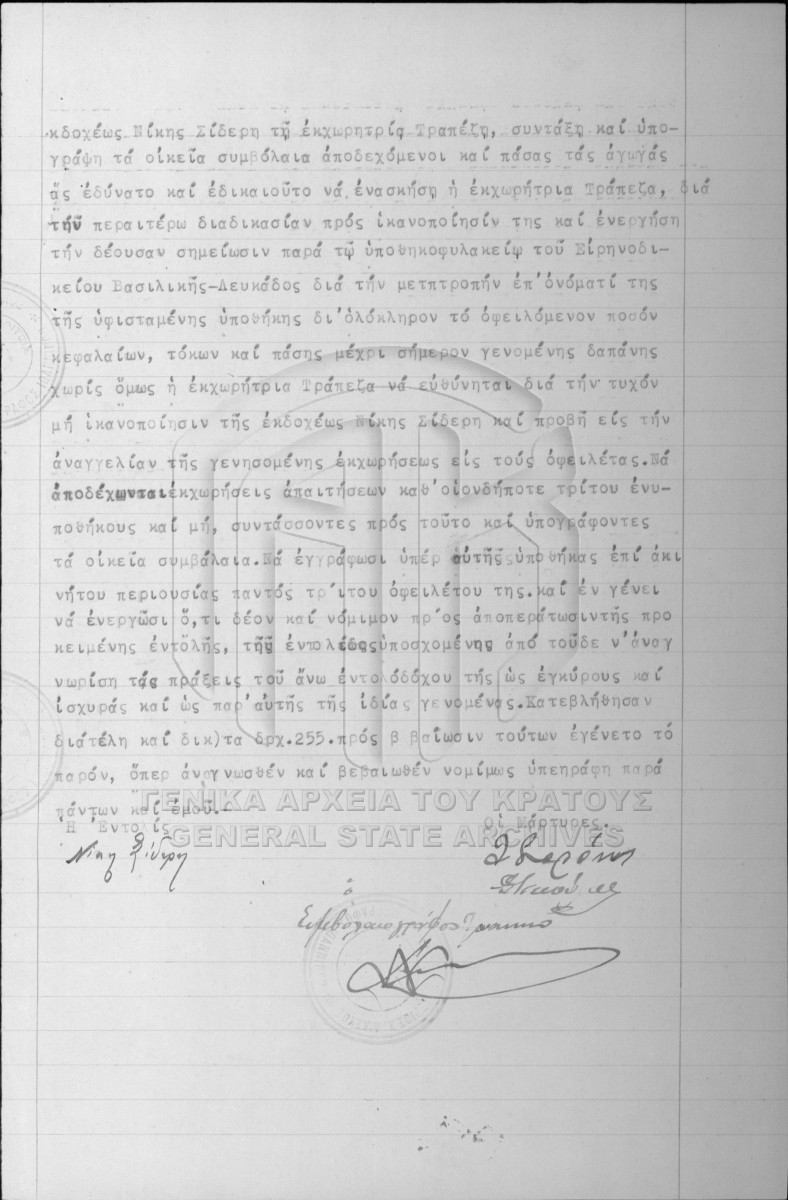 κδοχέως Νίκης Σίδερη τῇ ἐκχωρητρίᾳ Τραπέζῃ, συντάξῃ καί ὑπο-
γράψῃ τά οἰκεῖα συμβόλαια ἀποδεχόμενοι καί πάσας τάς ἀγωγάς
ἅς ἐδύνατο καί ἐδικαιοῦτο νά ἐνασκήσῃ ἡ ἐκχωρήτρια Τράπεζα, διά
τήν περαιτέρω διαδικασίαν πρός ἱκανοποίησίν της καί ἐνεργήσῃ
τήν δέουσαν σημείωσιν παρά τῷ ὑποθηκοφυλακείῳ τοῦ Εἰρηνοδι-
κείου Βασιλικῆς-Λευκάδος διά τήν μετπτροπήν ἐπ'ὀνόματί της
τῆς ὑφισταμένης ὑποθήκης δι'ὁλόκληρον τό ὀφειλόμενον ποσόν
κεφαλαίων, τόκων καί πάσης μέχρι σήμερον γενομένης δαπάνης
χωρίς ὅμως ἡ ἐκχωρήτρια Τράπεζα νά εὐθύνηται διά τήν τυχόν
μή ἱκανοποίησιν τῆς ἐκδοχέως Νίκης Σίδερη καί προβῇ εἰς τήν
ἀναγγελίαν τῆς γενησομένης ἐκχωρήσεως εἰς τούς ὀφειλέτας.Νά
ἀποδέχωνται ἐκχωρήσεις ἀπαιτήσεων καθ'οἱονδήποτε τρίτου ἐνυ-
ποθήκους καί μή, συντάσσοντες πρός τοῦτο καί ὑπογράφοντες
τά οἰκεῖα συμβάλαια.Νά ἐγγράφωσι ὑπέρ αὐτῆς ὑποθήκας ἐπί ἀκι
νήτου περιουσίας παντός τρίτου ὀφειλέτου της.καί ἐν γένει
νά ἐνεργῶσι ὅ,τι δέον καί νόμιμον πρός ἀποπεράτωσιν τῆς προ
κειμένης ἐντολῆς, τῆς ἐντολέδος ὑποσχομένης ἀπό τοῦδε ν'ἀναγ
νωρίσῃ τάς πράξεις τοῦ ἄνω ἐντολόδόχου τῆς ὡς ἐγκύρους καί
ἰσχυράς καί ὡς παρ'αὐτῆς τῆς ἰδίας γενομένας.Κατεβλήθησαν
διάτέλη καί δικ)τα δρχ.255.πρός β βαίωσιν τούτων ἐγένετο τό
παρόν, ὅπερ ἀναγνωσθέν καί βεβαιωθέν νομίμως ὑπεγράφη παρά
πάντων καί ἐμοῦ.-
ΓΕΝΙΚΑ ΑΡΧΕΙΑ ΤΟΥ ΚΡΑΤΟΥΣ
Ἡ Ἐντολίς Οἱ Μάρτυρες.
GENERAL STATE ARCHIVES
Νίκη Σίδερη
ὁ
Συμβολαιογράφος